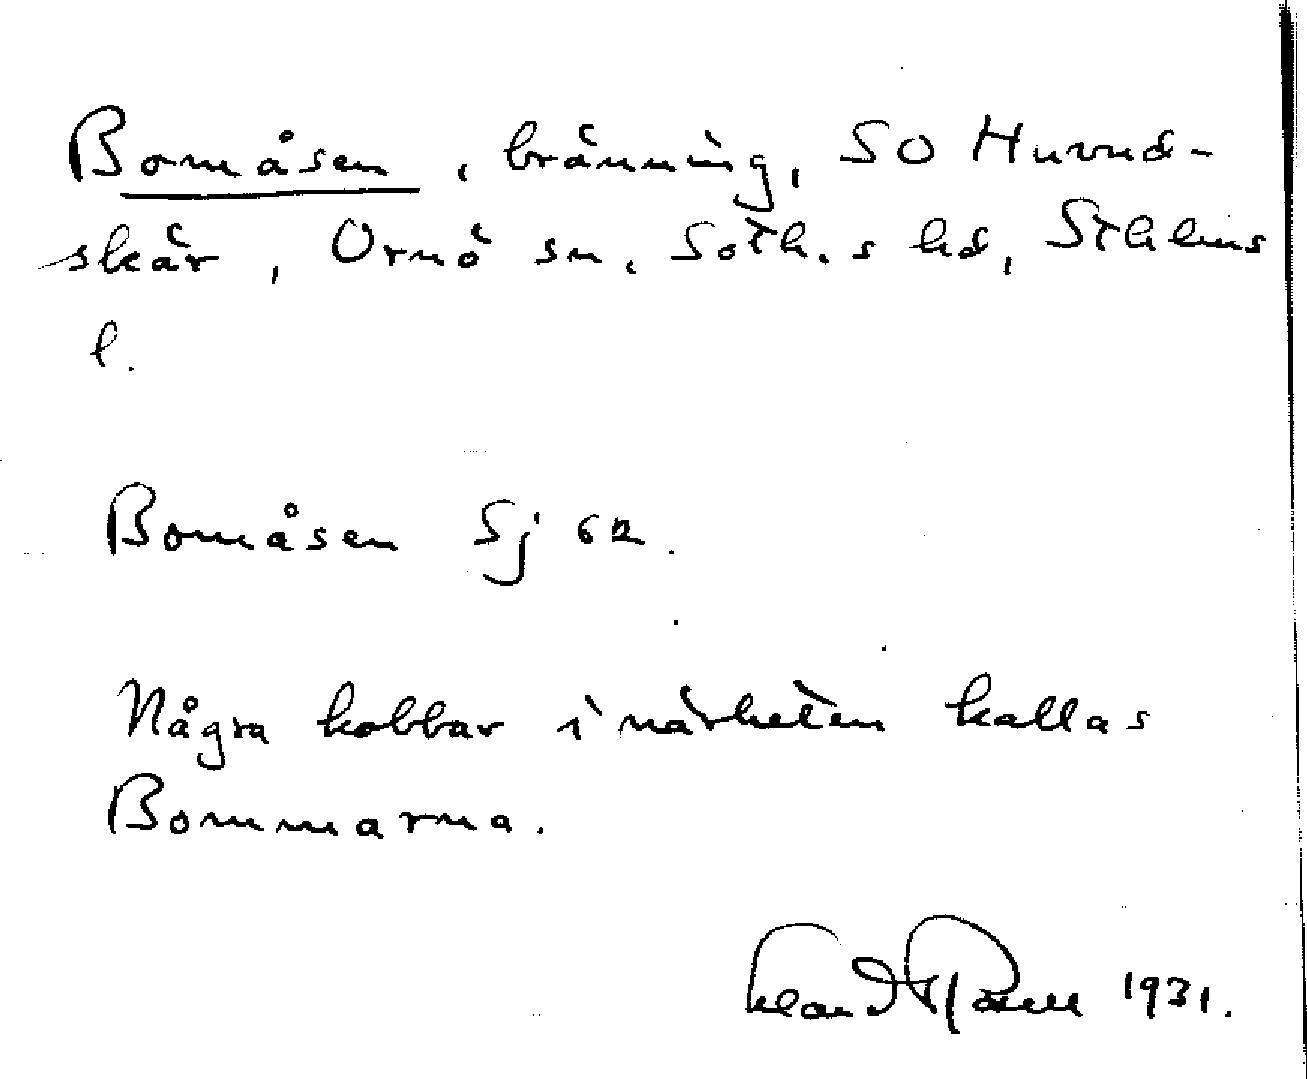 Bomåsen, bränning, SO Huvud-
skär, Ornö sn, Soth.s hd, Sthlms
l.
Bomåsen Sj 62.
Några kobbar i närheten kallas
Bommarna.
1931.